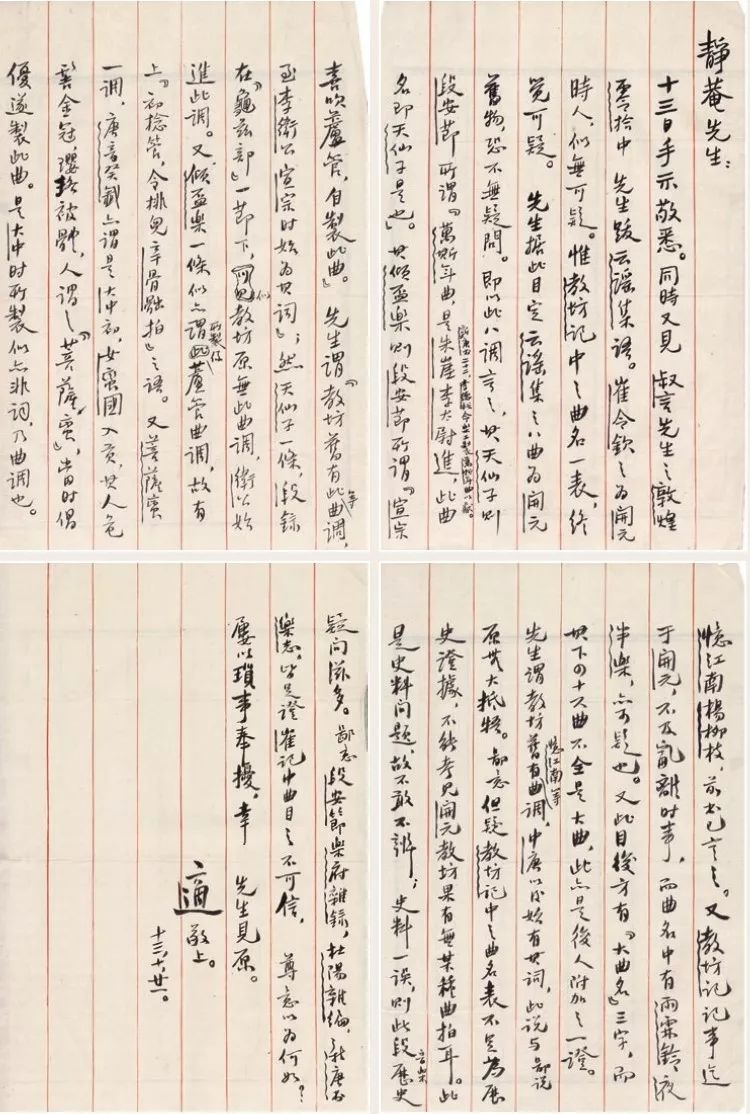 靜菴先生：
十三日手示敬悉。同時又見 叔言先生之敦煌
零拾中 先生跋云謠集語。崔令欽之為開元
時人，似無可疑。惟教坊記中之曲名一表，終
覺可疑。 先生据此目定云謠集之八曲為開元
舊物，恐不無疑問。即以此八調言之，其天仙子則
段安節所謂「萬斯年曲，是朱崖李太尉進，此曲
李德裕命工製萬斯年曲以獻。
名即天仙子是也」。其傾盃樂則段安節所謂「宣宗
喜吹蘆管，自製此曲」。 先生謂「教坊舊有此等曲調，
至李衛公宣宗時始為其詞」；然天仙子一條，段錄
在「龜茲部」一節下，似可見教坊原無此曲調，衛公始
進此調。又傾盃樂一條似亦謂所製仔蘆管曲調，故有
上「初捻管，令排兒辛骨䚟拍」之語。又菩薩蠻
一調，唐音癸籤亦謂是大中初，女蠻國入貢，其人危
髻金冠，瓔珞被體，人謂之「菩薩蠻」，當時倡
優遂製此曲。是大中時所製似亦非詞，乃曲調也。
憶江南楊柳枝，前書已言之。又教坊記記事迄
于開元，不及亂離時事，而曲名中有雨霖鈴，夜
半樂，亦可疑也。又此目後方有「大曲名」三字，而
其下四十六曲不全是大曲，此亦是後人附加之一證。
先生謂教坊舊有憶江南等曲調，中唐以後始有其詞，此說与鄙說
原無大抵牾。鄙意但疑教坊記中之曲名表不足為歷
史證據，不能考見開元教坊果有無某種曲拍耳。此
是史料問題，故不敢不辨；史料一誤，則此段音樂歷史
疑問滋多。鄙意段安節樂府雜錄，杜陽雜編，新唐書
樂志，皆足證崔記中曲目之不可信， 尊意以為何如？
屢以瑣事奉擾，幸 先生見原。
適敬上。
十三，十，廿一。